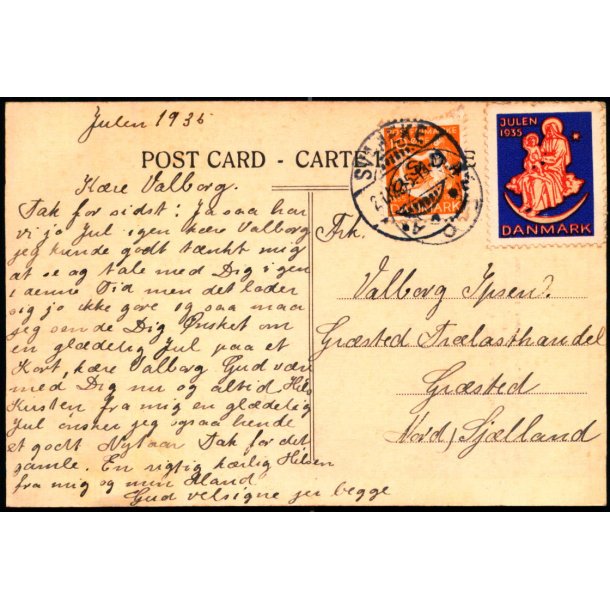 Julen 1935
POST CARD - CARTE
Kære Valborg.
Tak for sidst! Ja saa har
vi jo Jul igen kære Valborg
jeg kunde godt tænkt mig
at se og tale med Dig igen
i denne Tid men det lader
sig jo ikke göre og saa maa
jeg sende Dig Ønsket om
en glædelig Jul paa et
Kort, kære Valborg Gud være
med Dig nu og altid Hils
Kirsten fra mig en glædelig
Jul ønsker jeg ogsaa hende
et godt Nytaar Tak for det
gamle. En rigtig kærlig Hilsen
fra mig og min Mand
Gud velsigne jer begge
JULEN
1935
DANMARK
DANMARK
Frk.
Valborg Ipsen.
Græsted Trælasthandel
Græsted
Nord Sjælland